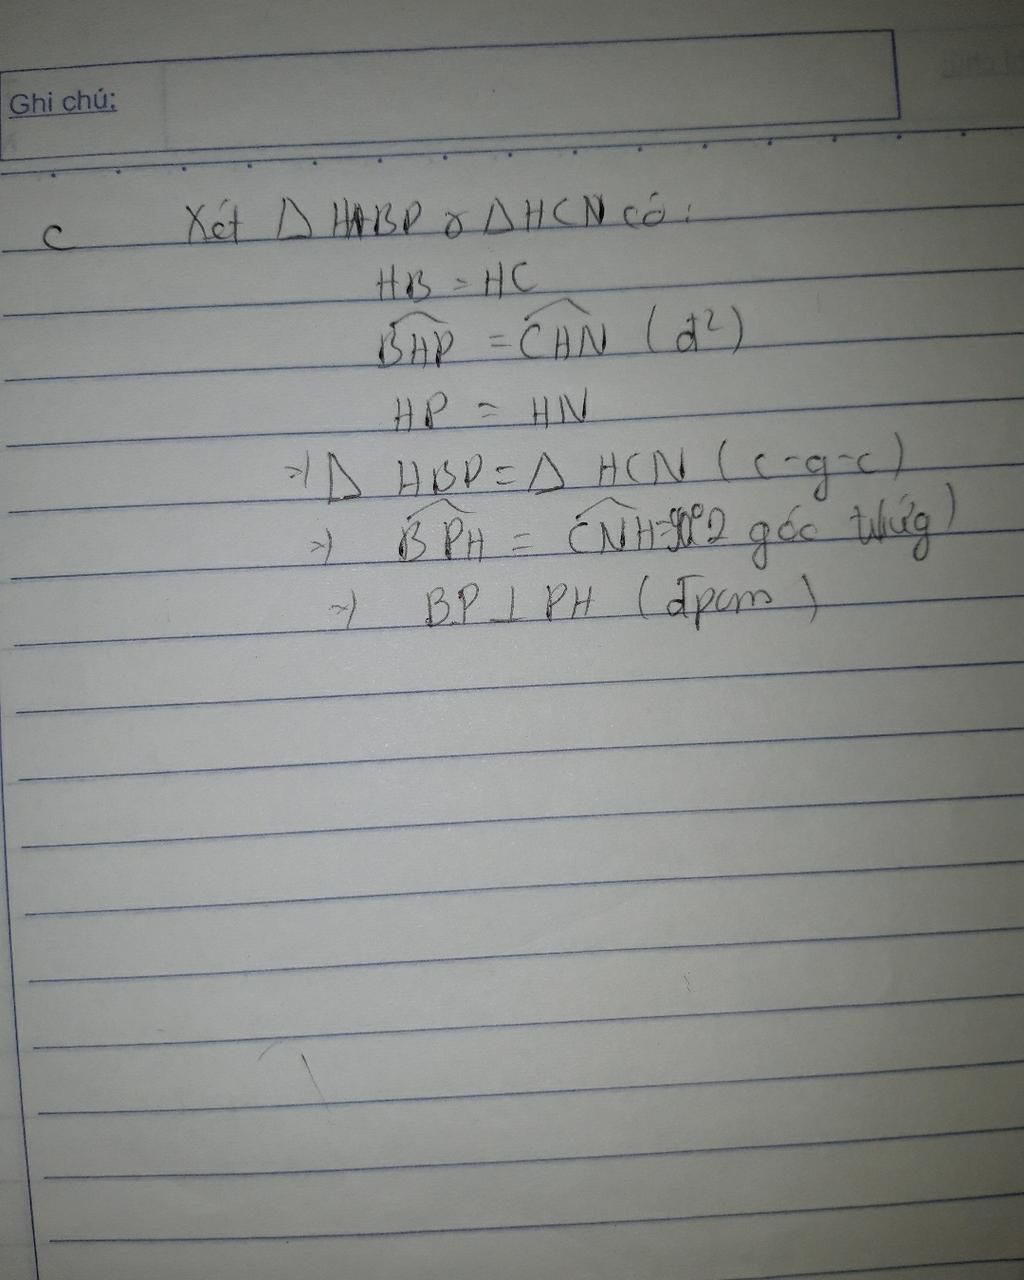 Ghi chú:
c Xét Δ HBP & Δ HCN có:
HB = HC
BHP = CHN (đ²)
HP = HN
=> Δ HBP = Δ HCN (c-g-c)
=> BPH = CNH=90° 2 góc tứng)
=> BP ⊥ PH (đpcm)